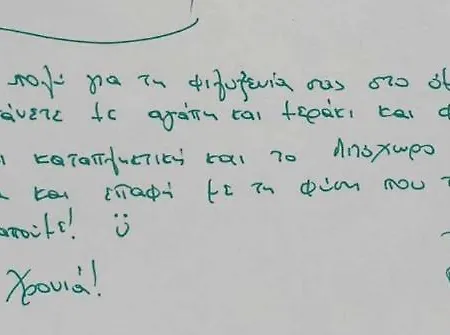 πολύ για τη φιλοξενία σας στο
με αγάπη και μεράκι και
καταπληκτική και το Λησχωρο
και επαφή με τη φύση που
Χρονιά!